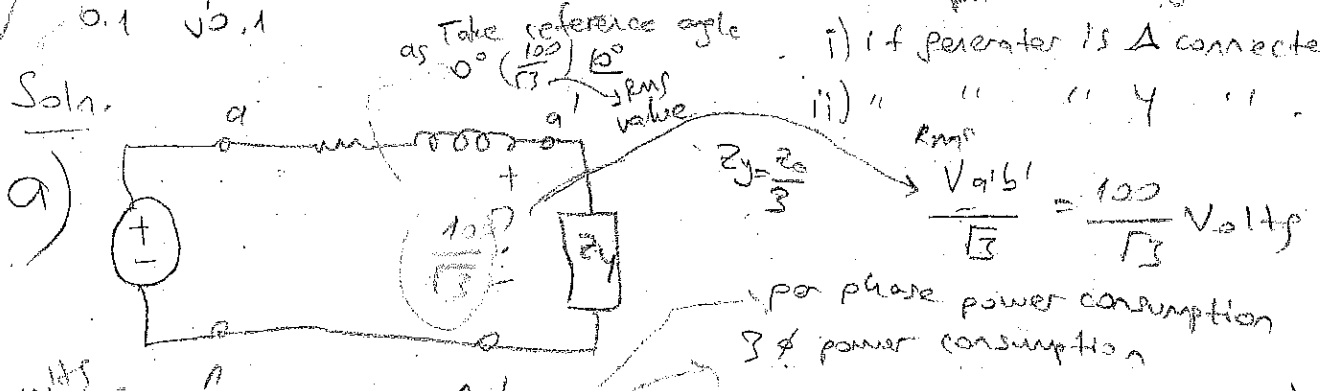 0.1 j0.1
Take reference angle
as 0° (100/√3) /0°
RMS
value
i) if generator is Δ connecte
ii) " " " Y " " .
Soln.
a)
a
a'
+
-
+
100/√3
-
Zy
Zy = Z₀/3
RMS
Va'b'/√3 = 100/√3 Volts
per phase power consumption
3 ϕ power consumption